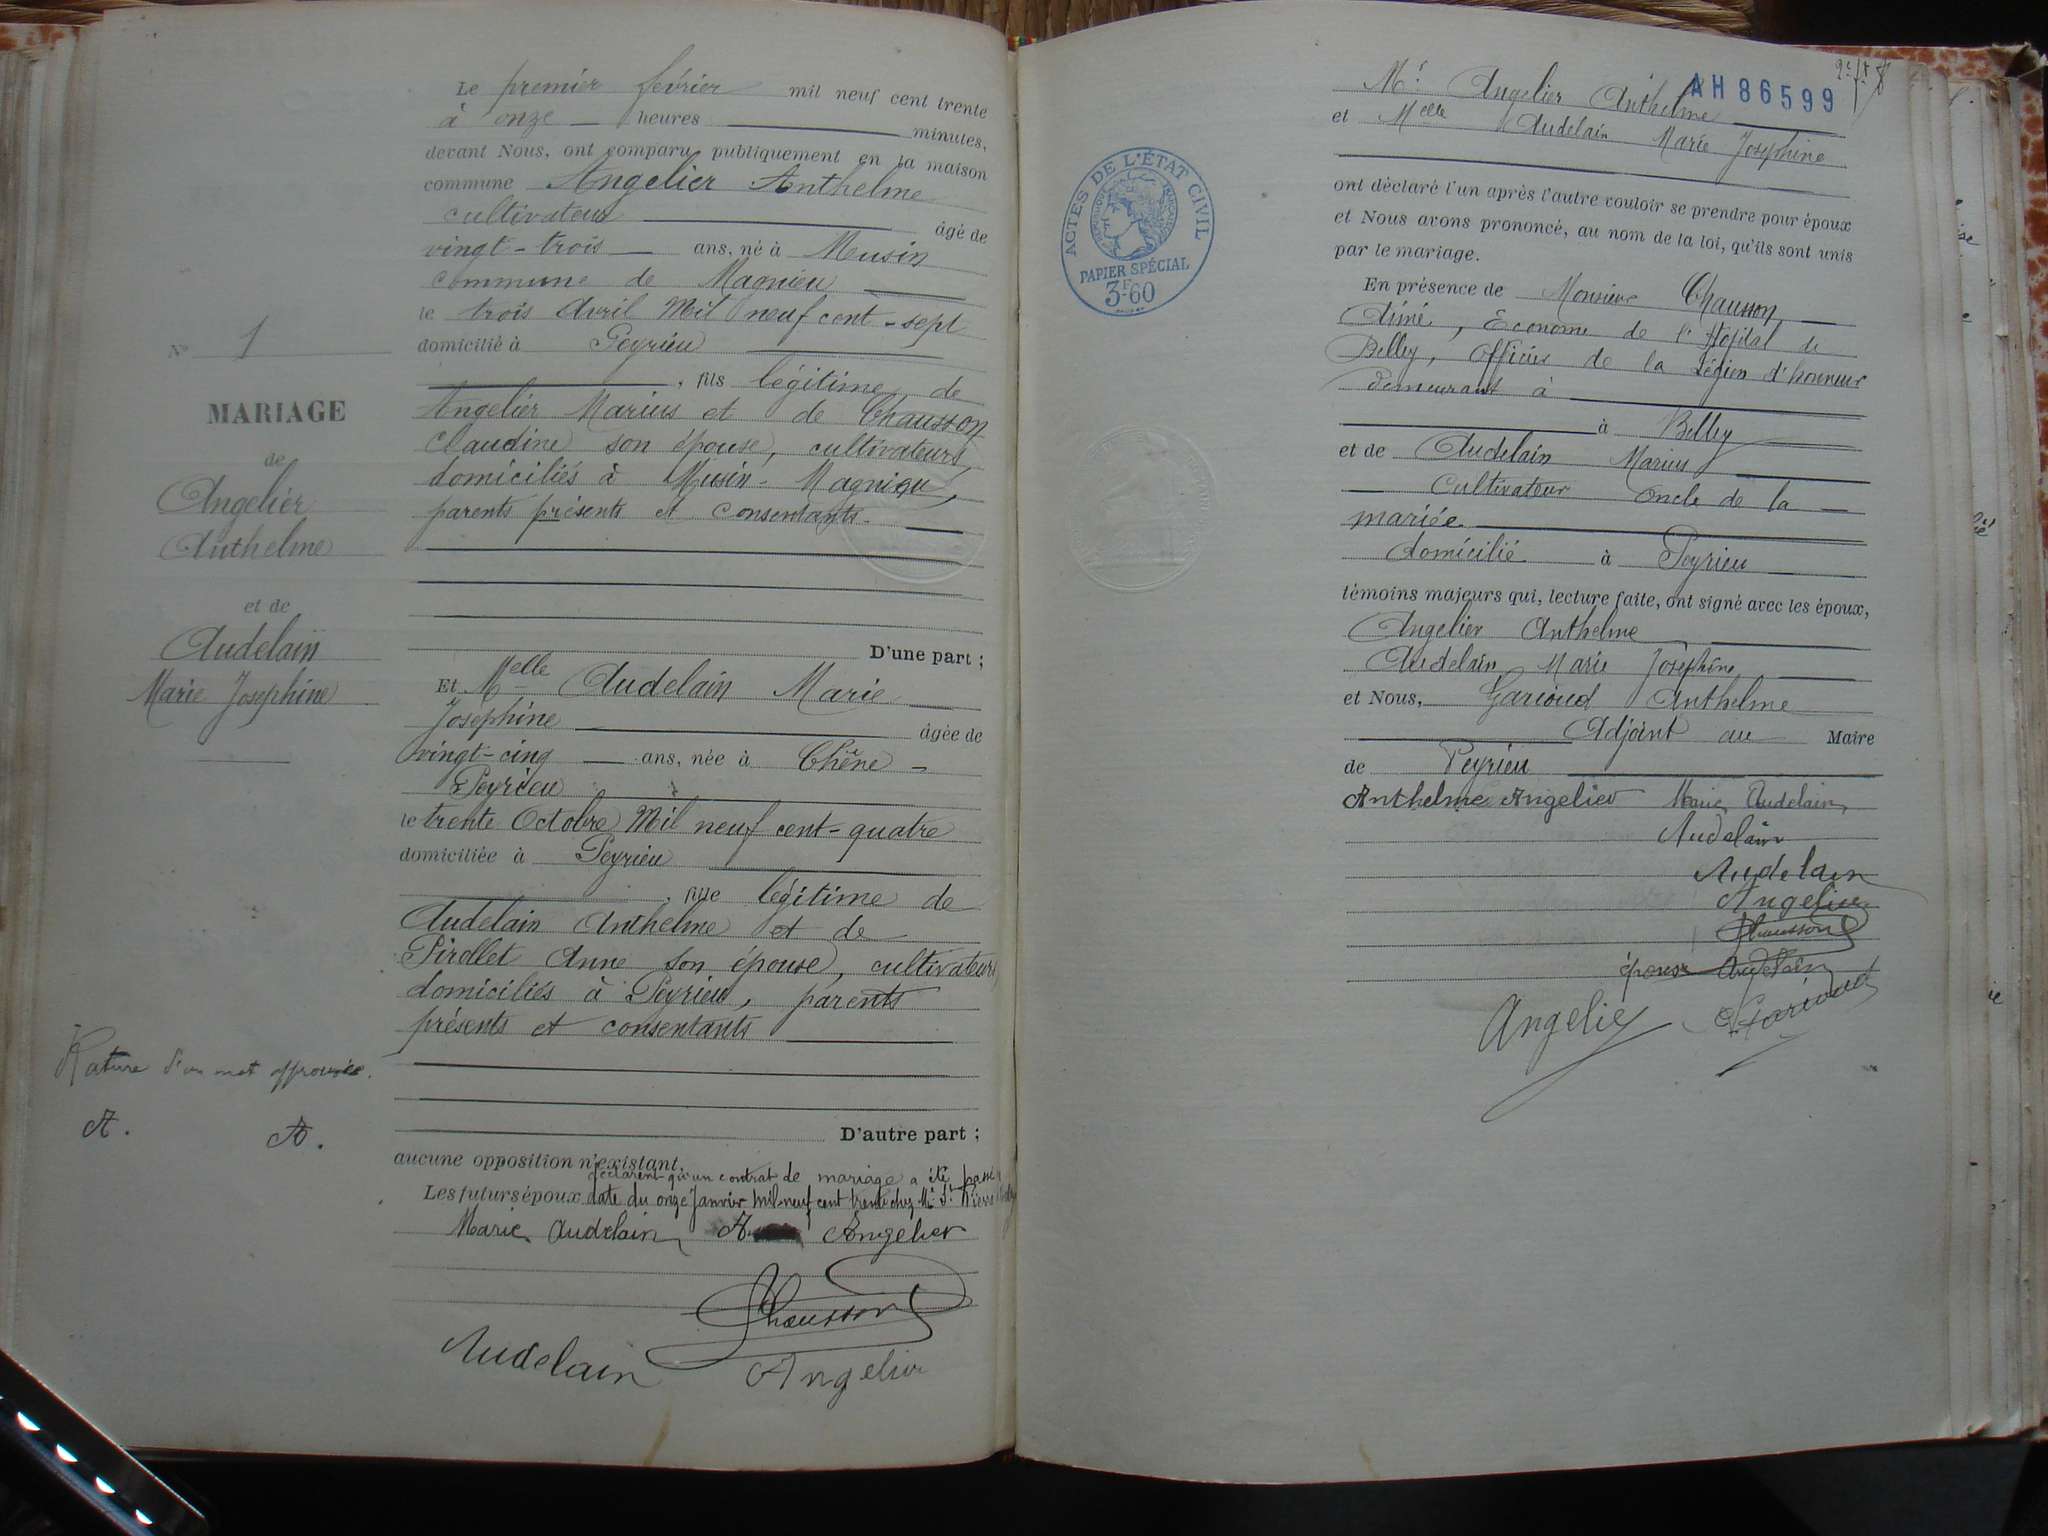 Le premier février mil neuf cent trente
à onze heures minutes,
devant Nous, ont comparu publiquement en la maison
commune Angelier Anthelme
cultivateur âgé de
vingt-trois ans, né à Musin
commune de Magnieu
le trois Avril Mil neuf cent-sept
domicilié à Peyrieu
, fils légitime de
Angelier Marius et de Chausson
Claudine son épouse, cultivateurs,
domiciliés à Musin-Magnieu,
parents présents et consentants.
D'une part ;
Et Melle Audelain Marie
Josephine âgée de
vingt-cinq ans, née à Chêne-
Peyrieu
le trente Octobre Mil neuf cent-quatre
domiciliée à Peyrieu
, fille légitime de
Audelain Anthelme et de
Pirollet Anne son épouse, cultivateurs
domiciliés à Peyrieu, parents
présents et consentants
D'autre part ;
aucune opposition n'existant.
déclarent qu'un contrat de mariage a été passé
Les futurs époux date du onze Janvier mil neuf cent trente chez Me St Pierre
Marie Audelain A Angelier
Chausson
Audelain Angelier
No 1
MARIAGE
de
Angelier
Anthelme
et de
Audelain
Marie Josephine
Rature d'un mot approuvée.
A. A.
AH86599
Mr Angelier Anthelme
et Melle Audelain Marie Josephine
ont déclaré l'un après l'autre vouloir se prendre pour époux
et Nous avons prononcé, au nom de la loi, qu'ils sont unis
par le mariage.
En présence de Monsieur Chausson
Aimé, Econome de l'Hôpital de
Belley, Officier de la Légion d'honneur
demeurant à
à Belley
et de Audelain Marius
Cultivateur Oncle de la
mariée
domicilié à Peyrieu
témoins majeurs qui, lecture faite, ont signé avec les époux,
Angelier Anthelme
Audelain Marie Josephine
et Nous, Garioud Anthelme
Adjoint au Maire
de Peyrieu
Anthelme Angelier Marie Audelain
Audelain
Audelain
Angelier
Chausson
épouse Audelain
Angelier Garioud
ACTES DE L'ÉTAT CIVIL
PAPIER SPÉCIAL
3F60